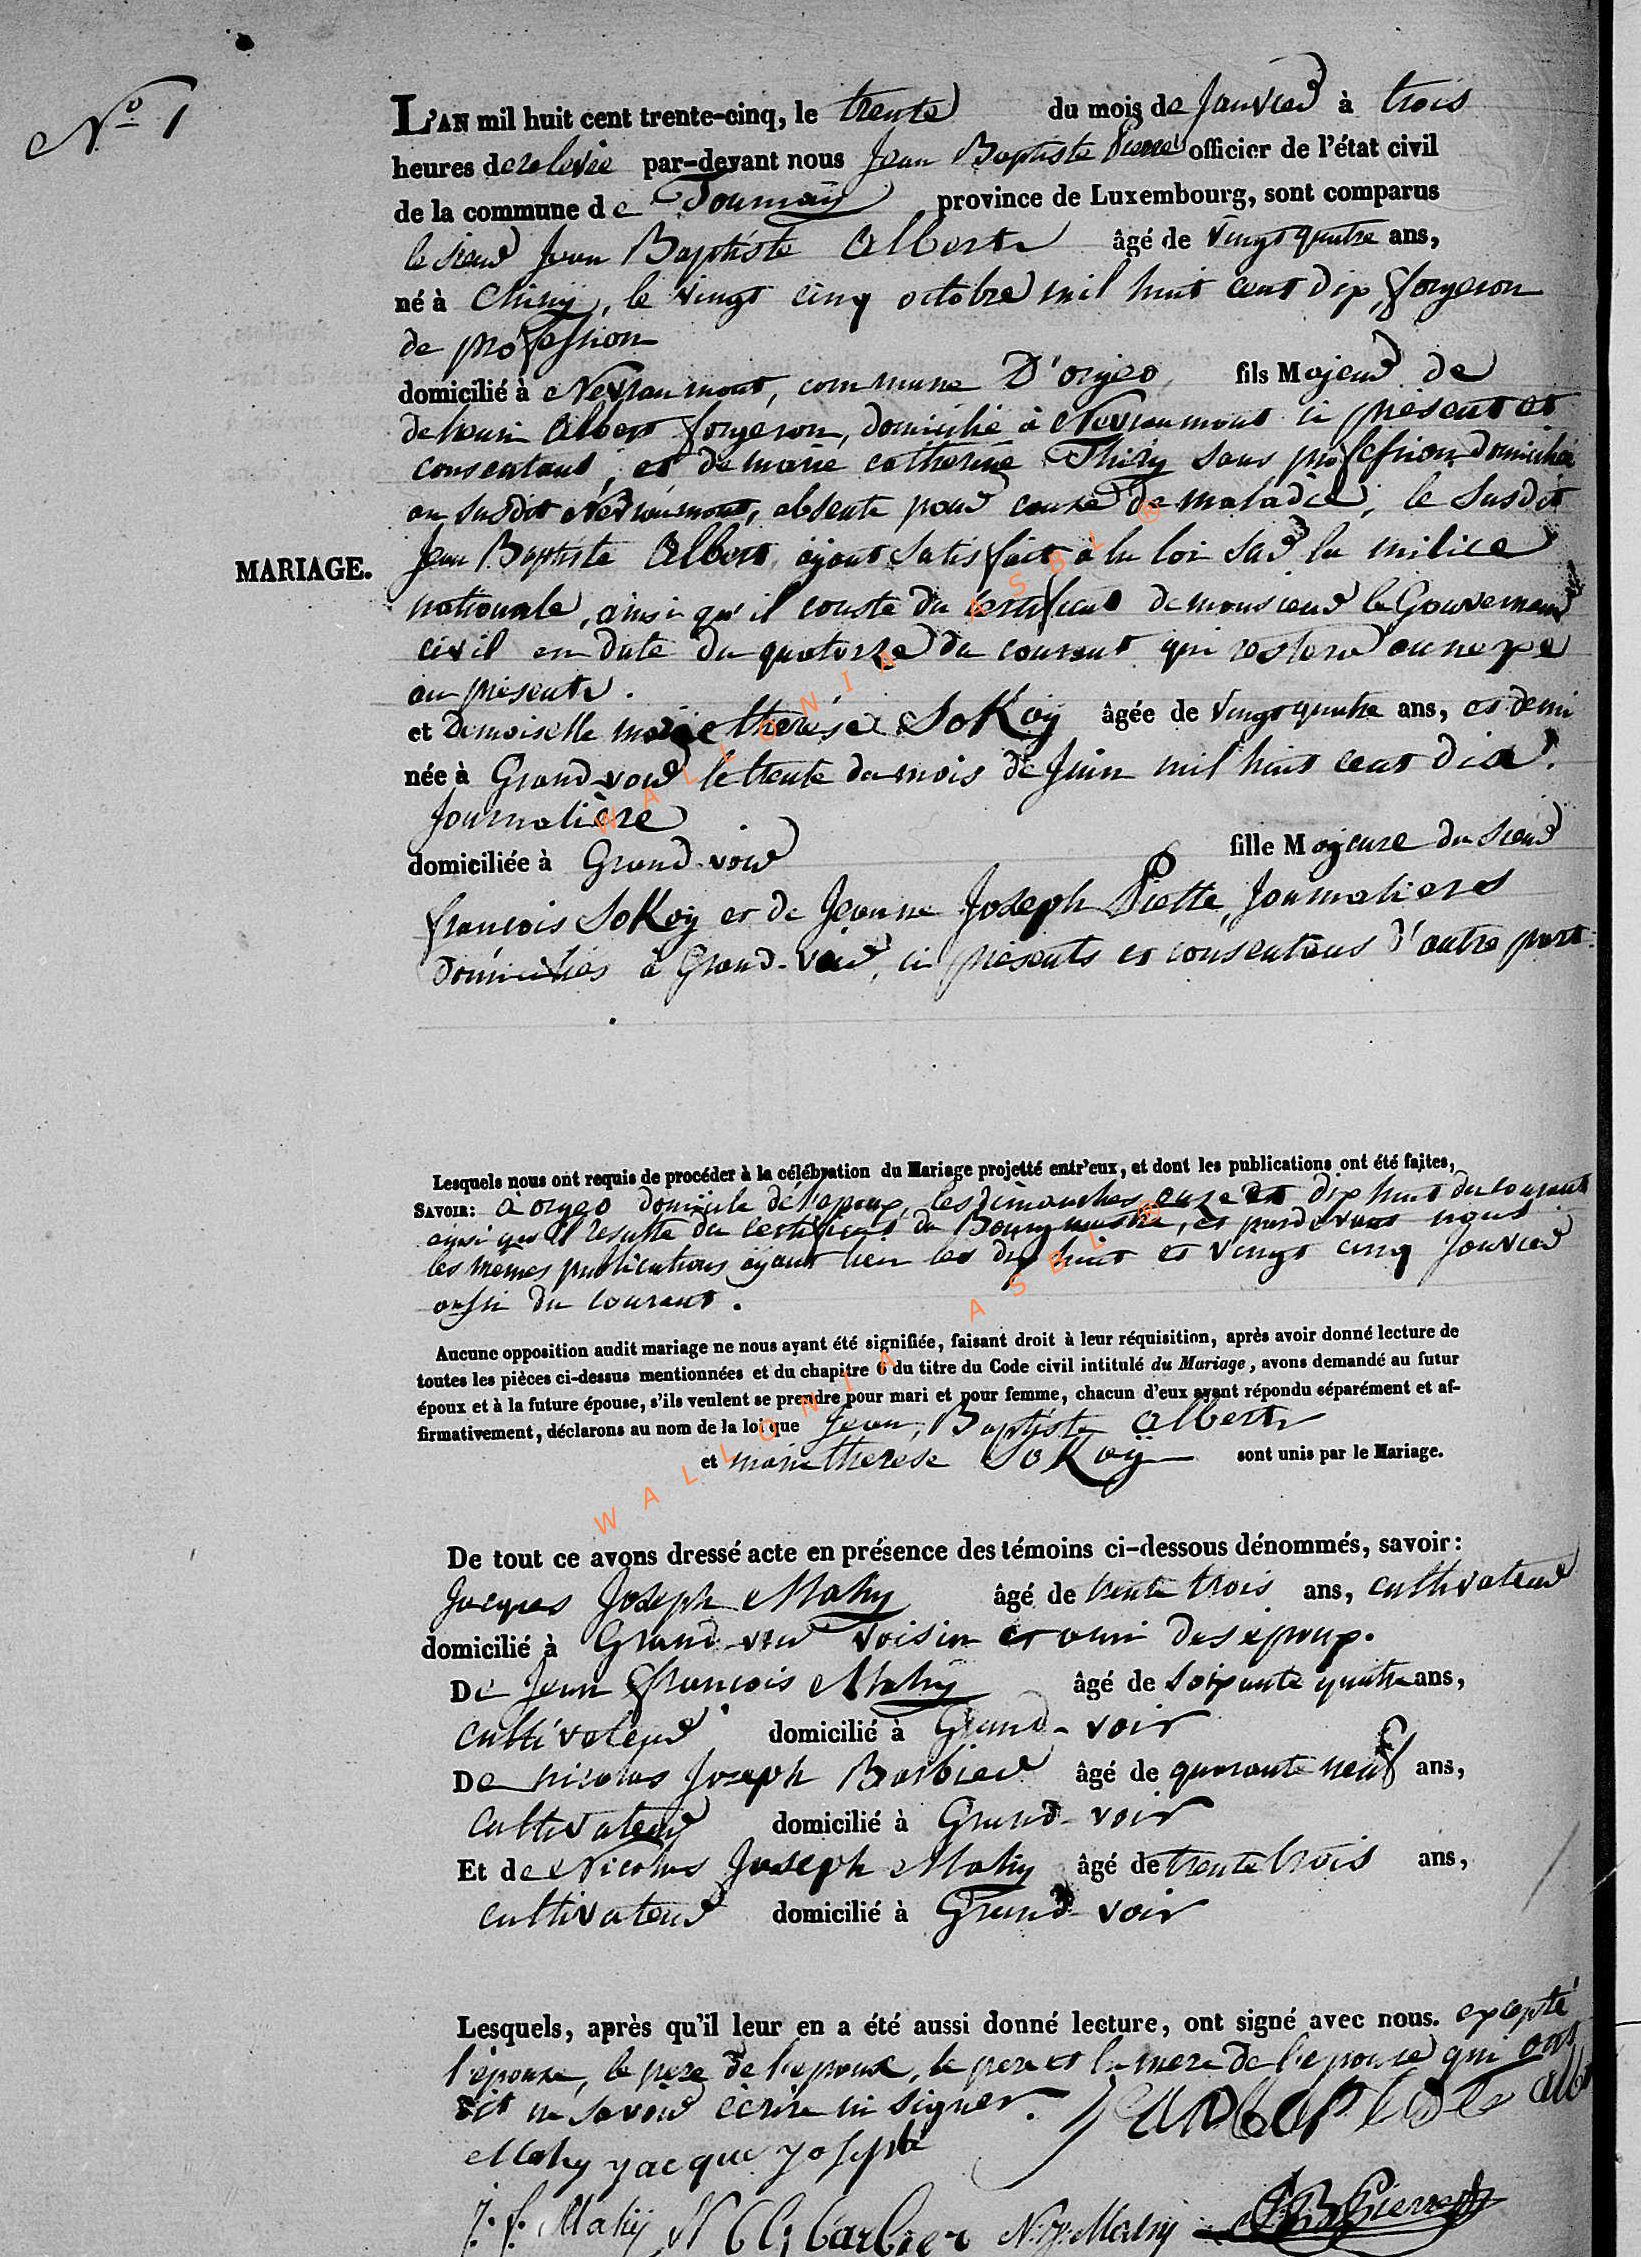 N° 1
L'AN mil huit cent trente-cinq, le trente du mois de Janvier à trois
heures de relevée par-devant nous Jean Baptiste Pierre officier de l'état civil
de la commune de Tournaÿ province de Luxembourg, sont comparus
le sieur Jean Baptiste Albert âgé de vingt quatre ans,
né à Chinÿ, le vingt cinq octobre mil huit cent dix, forgeron
de profession
domicilié à Nevraumont, commune D'orgeo, fils Majeur de
de henri Albert forgeron, domicilié à Nevraumont ci présent et
consentant, et de marie catherine Thiry sans profession domiciliée
au susdit Nevraumont, absente pour cause de maladie, le susdit
MARIAGE.
Jean Baptiste Albert ayant satisfait à la loi sur la milice
nationale, ainsi qu'il conste du certificat de monsieur le Gouverneur
civil en date du quatorze du courant qui restera annexé
au présente.
et Demoiselle marie therése SoKoÿ âgée de vingt quatre ans, et demi
née à Grand-voir le trente du mois de Juin mil huit cent dix.
Journalière
domiciliée à Grand-voir fille Majeure du sieur
françois SoKoÿ et de Jeanne Joseph Piette, Journaliers
domiciliés à Grand-voir, ci présents et consentans d'autre part.
Lesquels nous ont requis de procéder à la célébration du Mariage projetté entr'eux, et dont les publications ont été faites,
SAVOIR: à orgeo domicile de l'epoux, les dimanches onze et dix huit du courant
ainsi qu'il résulte du certificat du Bourgmestre, et pardevant nous
les mêmes publications ayant lieu les dix huit et vingt cinq Janvier
aussi du courant.
Aucune opposition audit mariage ne nous ayant été signifiée, faisant droit à leur réquisition, après avoir donné lecture de
toutes les pièces ci-dessus mentionnées et du chapitre 6 du titre du Code civil intitulé du Mariage, avons demandé au futur
époux et à la future épouse, s'ils veulent se prendre pour mari et pour femme, chacun d'eux ayant répondu séparément et af-
firmativement, déclarons au nom de la loi que Jean, Baptiste Albert
et marie therese SoKoÿ sont unis par le Mariage.
De tout ce avons dressé acte en présence des témoins ci-dessous dénommés, savoir:
Jacques Joseph Mahy âgé de trente trois ans, cultivateur
domicilié à Grand-voir voisin et ami des époux.
De Jean françois Mahÿ âgé de soixante quatre ans,
cultivateur domicilié à Grand-voir
De nicolas Joseph Barbier âgé de quarante neuf ans,
cultivateur domicilié à Grand-voir
Et de Nicolas Joseph Mahy âgé de trente trois ans,
cultivateur domicilié à Grand-voir
Lesquels, après qu'il leur en a été aussi donné lecture, ont signé avec nous. excepté
l'épouse, le pere de l'epoux, le pere et la mere de l'epouse qui ont
dit ne savoir ecrire ni signer. Jean baptiste alb
Mahy jacque joseph
j. f. Mahÿ barbier N. j. Mahy JB Pierre
WALLONIA ASBL ®
WALLONIA ASBL ®